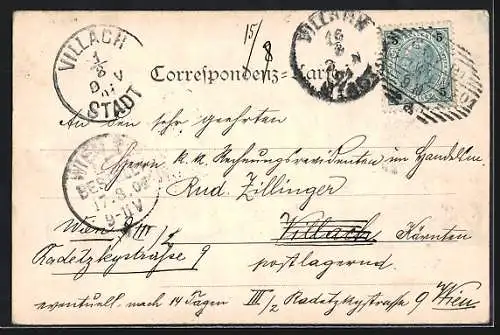 15/8
VILLACH
STADT
VILLACH
STADT
5 5
Correspondenz-Karte
An den sehr geehrten
Herrn K. K. Rechnungsrevidenten im Handelsm.
Rud. Zillinger
WIEN
17. 8.
9-11 V
Wien III/2
Villach Kärnten
Radetzkystraße 9
postlagernd
eventuell nach 14 Tagen III/2 Radetzkystraße 9 Wien